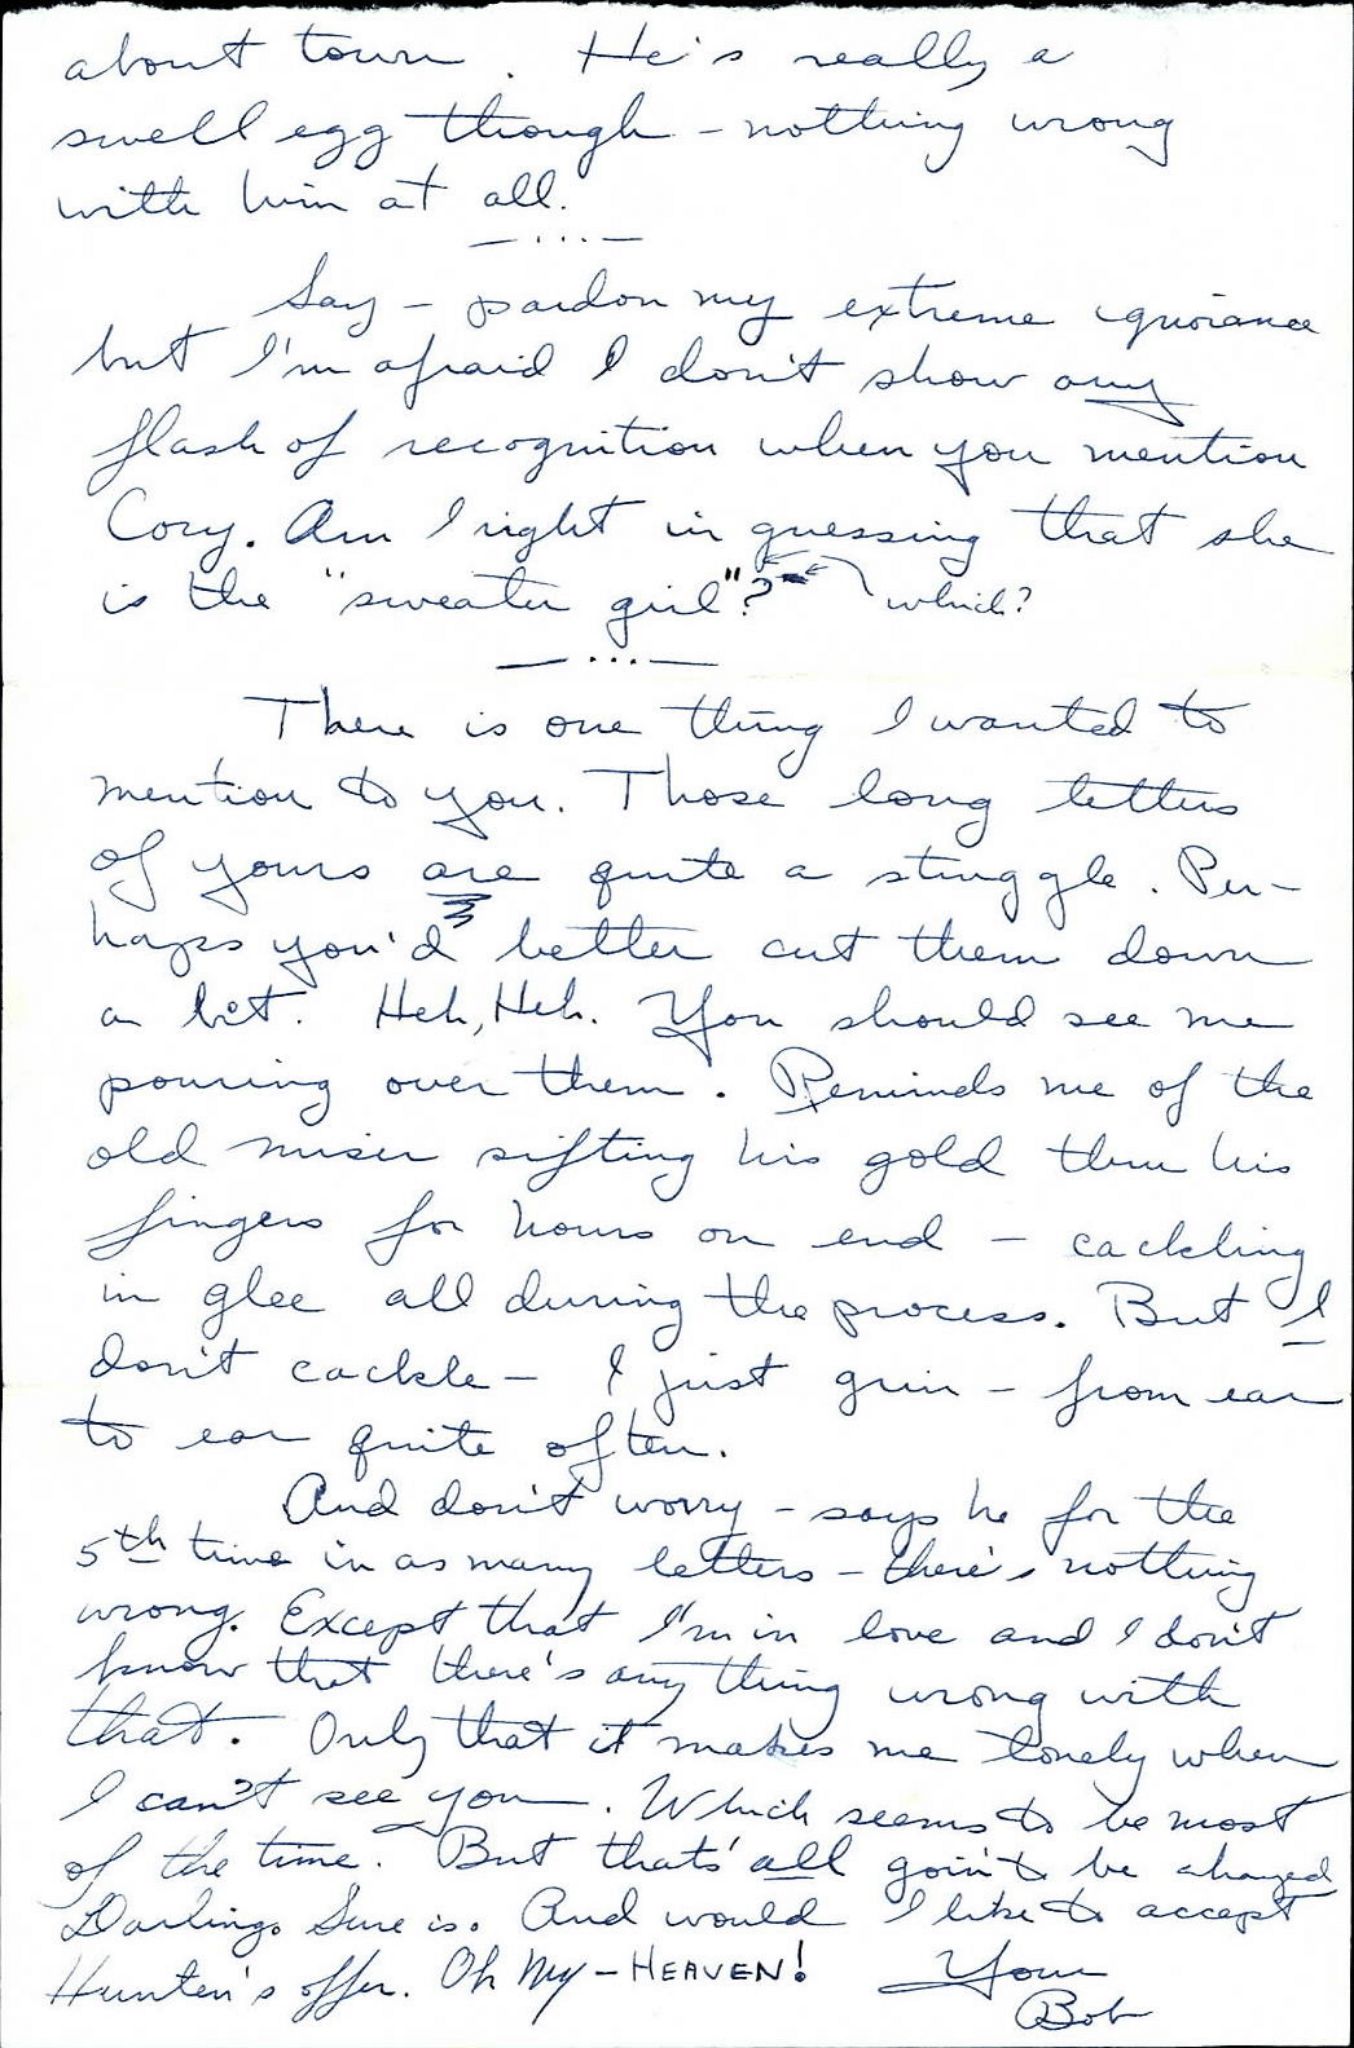 about town. He's really a
swell egg though - nothing wrong
with him at all.
— ... —
Say - pardon my extreme ignorance
but I'm afraid I don't show any
flash of recognition when you mention
Cory. Am I right in guessing that she
is the "sweater girl"? which?
— ... —
There is one thing I wanted to
mention to you. Those long letters
of yours are quite a struggle. Per-
haps you'd better cut them down
a bit. Heh, Heh. You should see me
pouring over them. Reminds me of the
old miser sifting his gold thru his
fingers for hours on end - cackling
in glee all during the process. But I
don't cackle - I just grin - from ear
to ear quite often.
And don't worry - says he for the
5th time in as many letters - there's nothing
wrong. Except that I'm in love and I don't
know that there's anything wrong with
that. Only that it makes me lonely when
I can't see you. Which seems to be most
of the time. But thats' all goin' to be changed
Darling. Sure is. And would I like to accept
Hunten's offer. Oh My - HEAVEN!
Your
Bob